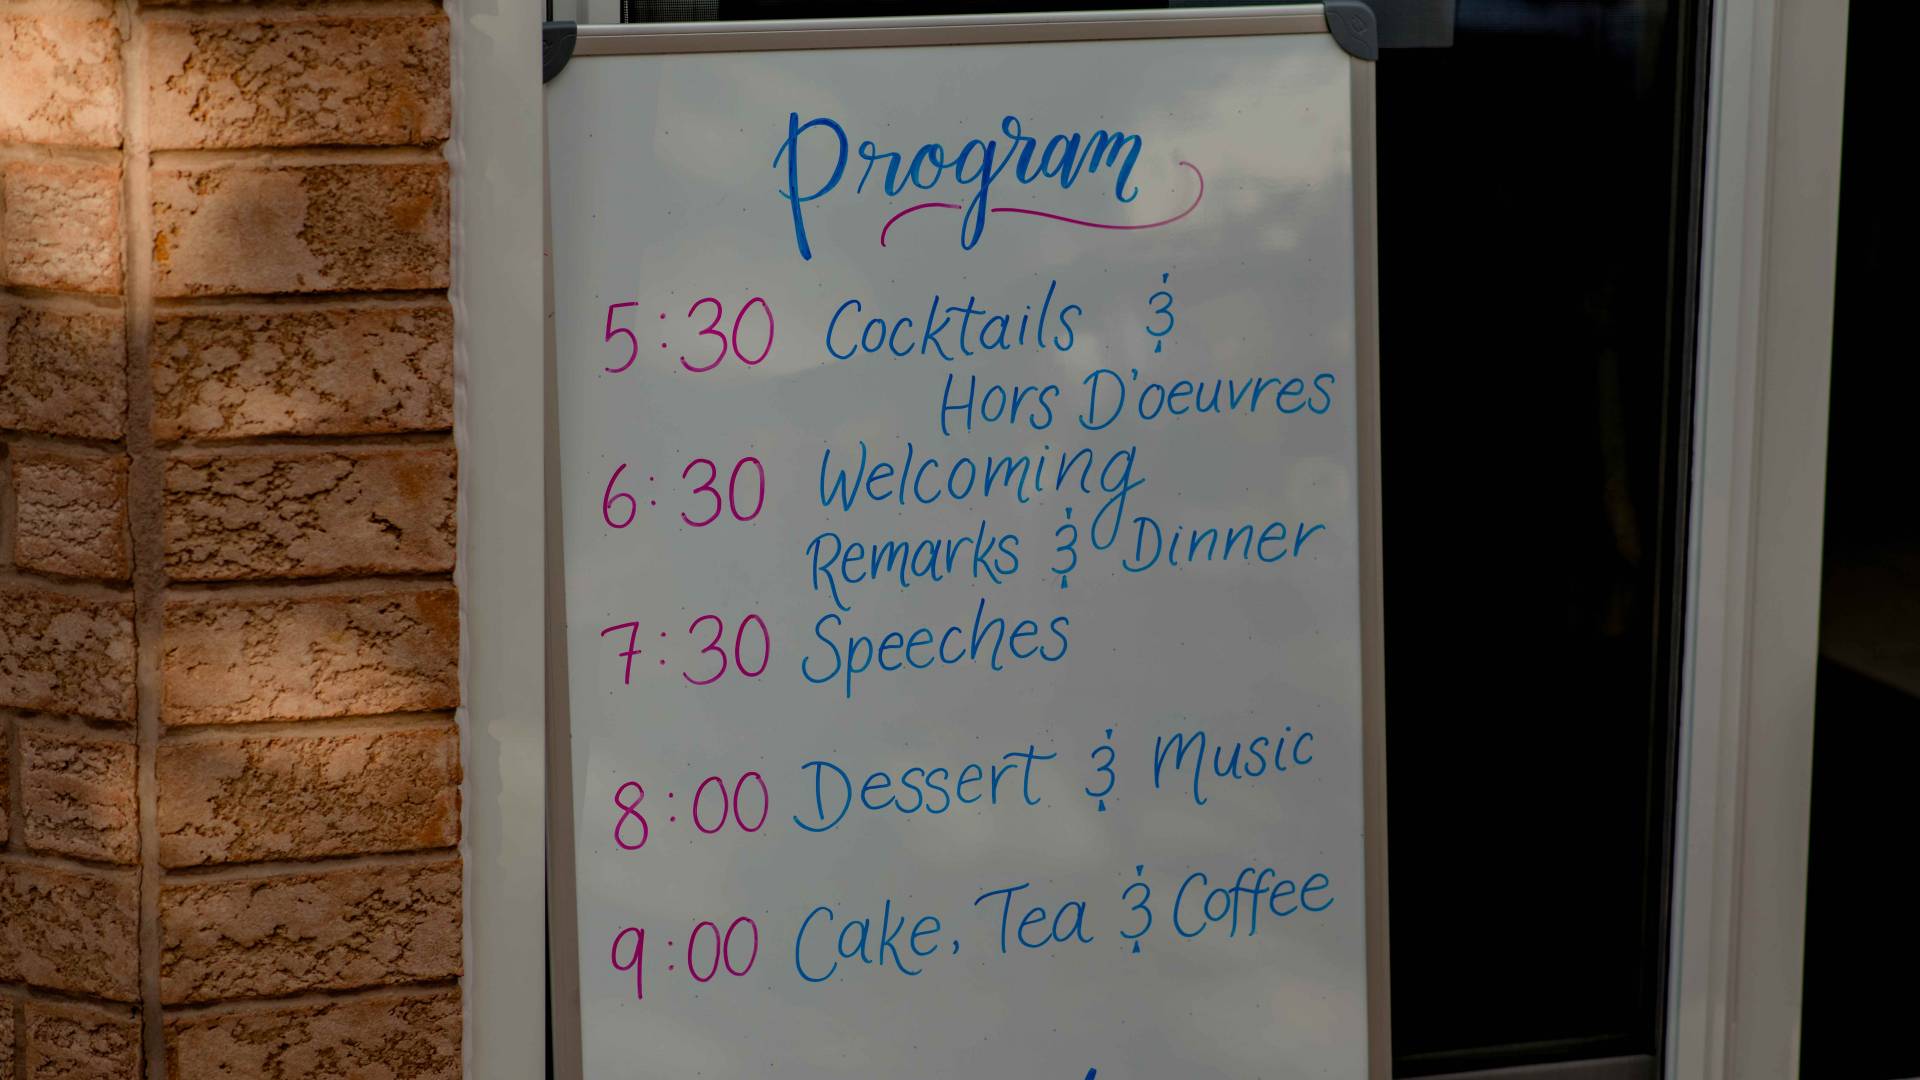 Program
5:30 Cocktails &
Hors D'oeuvres
6:30 Welcoming
Remarks & Dinner
7:30 Speeches
8:00 Dessert & Music
9:00 Cake, Tea & Coffee